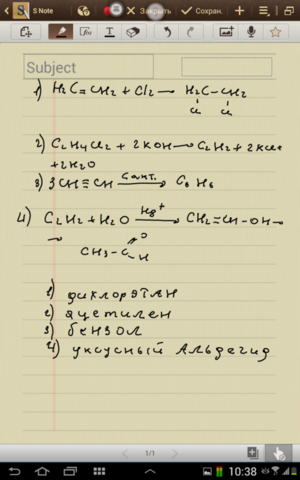 S Note
Закрыть
Сохран.
Subject
1) H2C=CH2 + Cl2 → H2C-CH2
Cl Cl
2) C2H4Cl2 + 2KOH → C2H2 + 2KCl
+2H2O
3) 3CH≡CH C акт. → C6H6
4) C2H2 + H2O Hg+ → CH2=CH-OH →
→ CH3-C O H
1) дихлорэтан
2) ацетилен
3) бензол
4) уксусный Альдегид
1/1
10:38